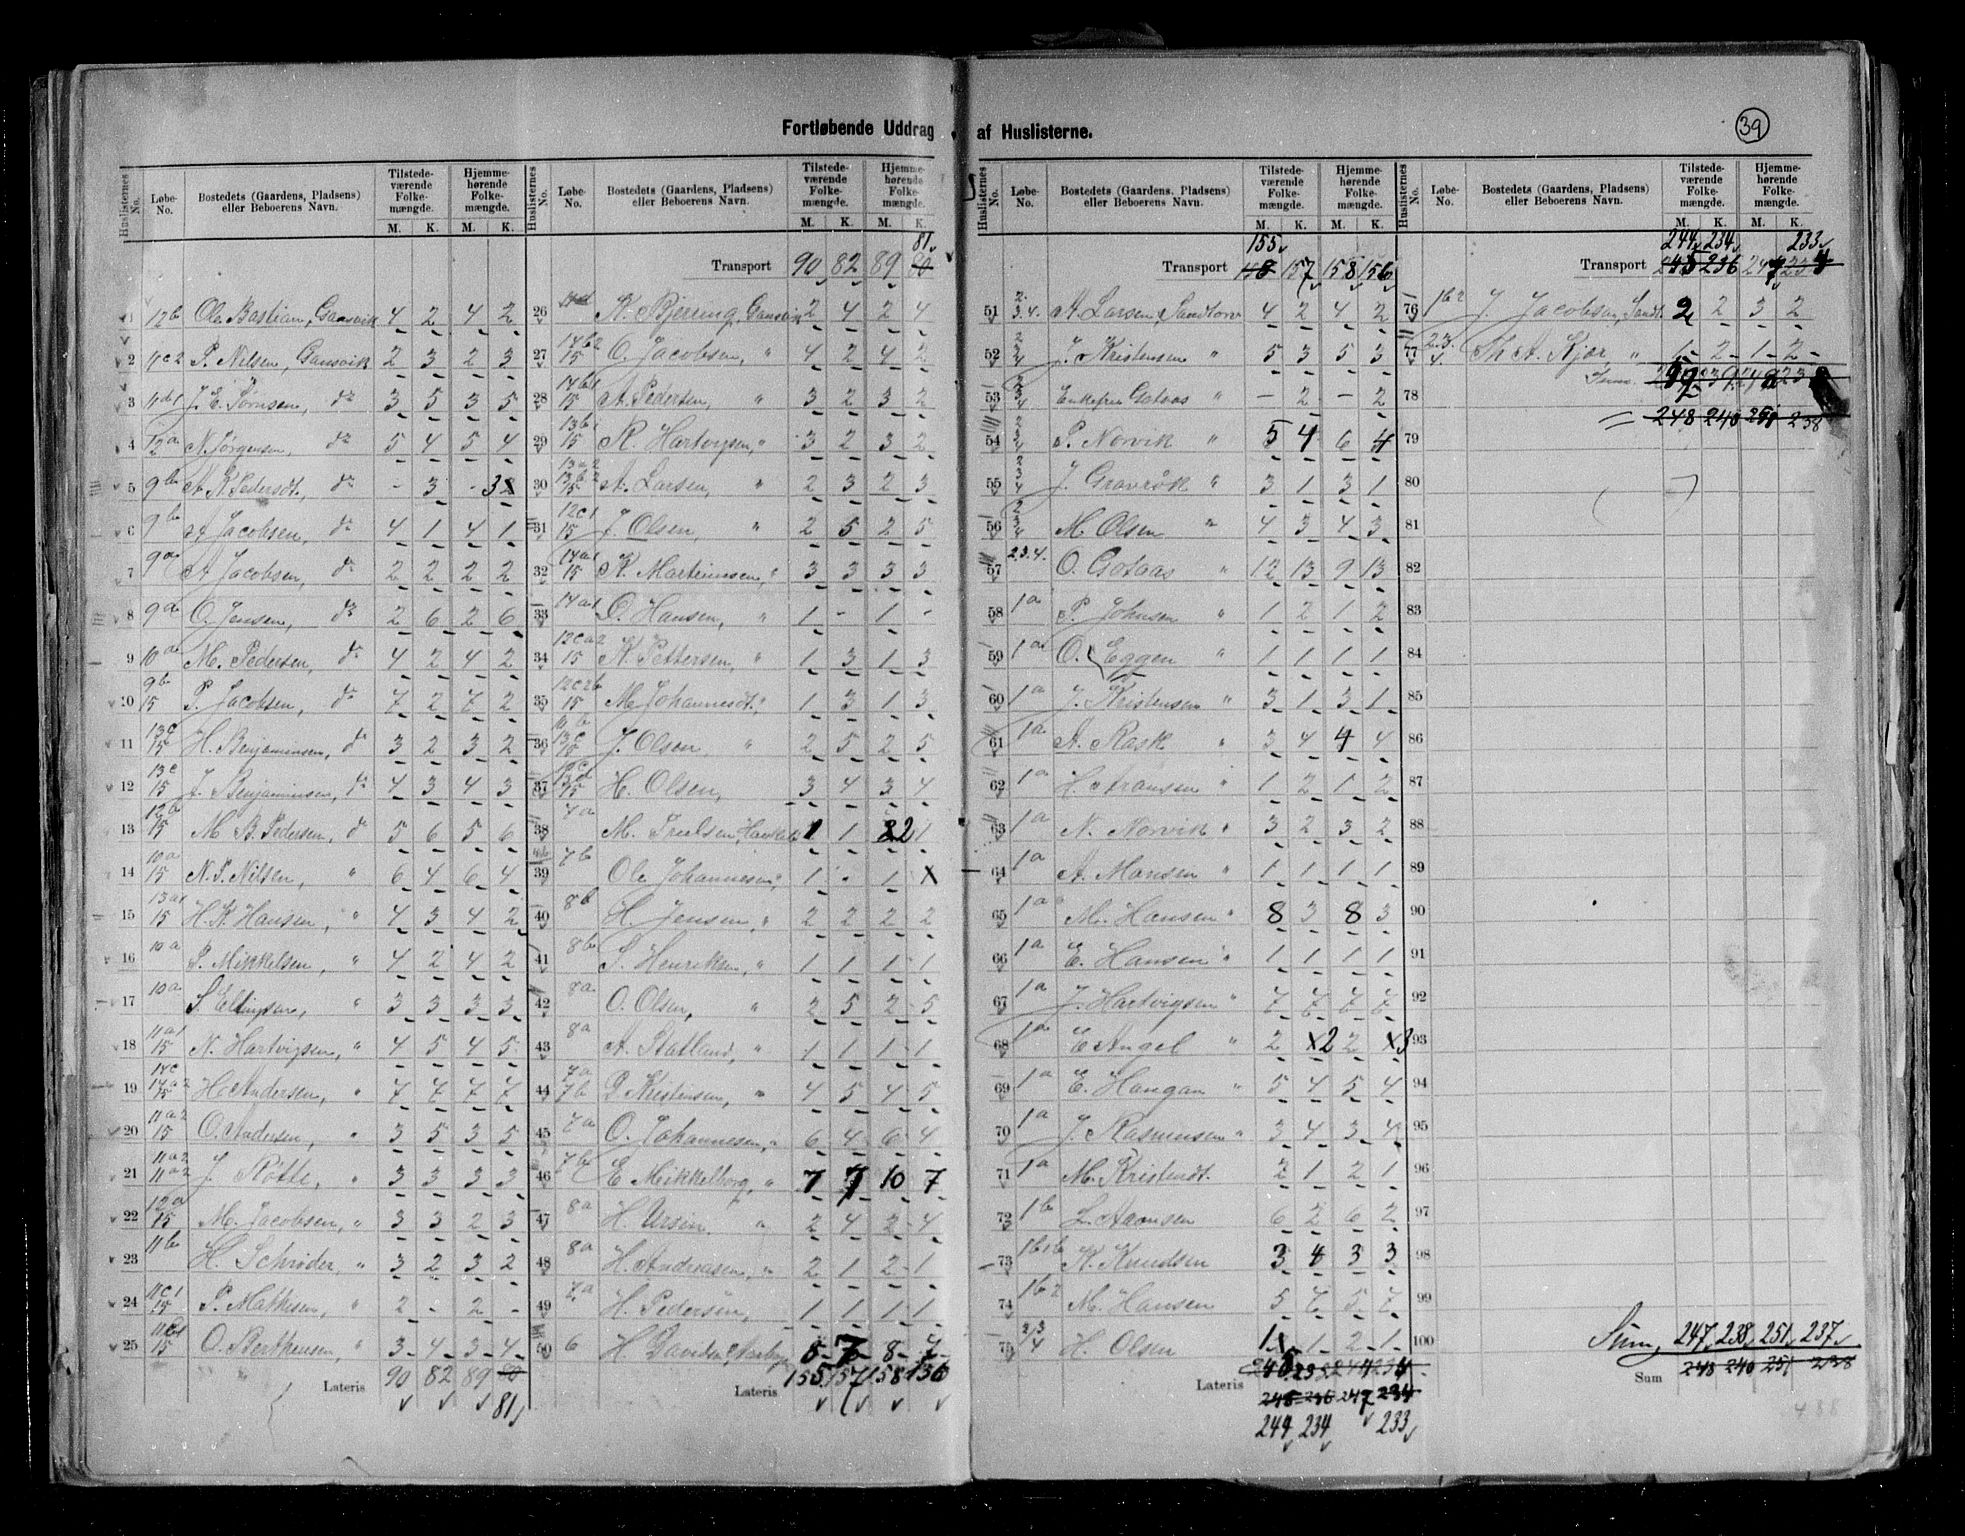 Fortløbende Uddrag af Huslisterne.
39
Huslisternes No. Løbe-No. Bostedets (Gaardens, Pladsens) eller Beboerens Navn. Tilstedeværende Folkemængde. M. K. Hjemmehørende Folkemængde. M. K.
1 12b Ole Bastian, Gansvik 4 2 4 2
2 11c2 P. Nilsen, Gansvik 2 3 2 3
3 11d1 J. E. Tørnsen, do 3 5 3 5
4 12a N. Jørgensen, do 5 4 5 4
5 9b A K Pedersdt., do - 3 - 3
6 9b A Jacobsen, do 4 1 4 1
7 9a A Jacobsen, do 2 2 2 2
8 9a O. Jensen, do 2 6 2 6
9 10a M. Pedersen, do 4 2 4 2
10 9b 15 P. Jacobsen, do 7 2 7 2
11 13c 15 H. Benjaminsen, do 3 2 3 2
12 13c 15 J. Benjaminsen, do 4 3 4 3
13 12b 15 M B. Pedersen, do 5 6 5 6
14 10a 15 N. P. Nilsen, " 6 4 6 4
15 13a1 15 H. K. Hansen, " 4 3 4 2
16 10a P. Mikkelsen, " 4 2 4 2
17 10a S. Ellingsen, " 3 3 3 3
18 11a1 15 N. Hartvigsen, " 4 5 4 5
19 14c 14a2 15 H. Andersen, " 7 7 7 7
20 11a2 15 O. Andersen, " 3 5 3 5
21 11a2 11a2 J. Røtte, " 3 3 3 3
22 12a 15 M. Jacobsen, " 3 3 2 3
23 11b H. Schrøder, " 3 2 3 2
24 11c1 15 P. Mathisen, " 2 - 2 -
25 15 O. Berthensen, " 3 4 3 4
Lateris 90 82 89 80
81
Huslisternes No. Løbe-No. Bostedets (Gaardens, Pladsens) eller Beboerens Navn. Tilstedeværende Folkemængde. M. K. Hjemmehørende Folkemængde. M. K.
81
Transport 90 82 89 80
26 K. Bjerring, Gansvik 2 4 2 4
27 14b2 15 O. Jacobsen, " 4 2 4 2
28 14b1 15 A. Pedersen, " 3 2 3 2
29 13b1 15 K. Hartvigsen, " 3 2 3 2
30 13a2 13b2 15 A. Larsen, " 2 3 2 3
31 12c1 15 J. Olsen, " 2 5 2 5
32 14a1 15 K. Martinusen, " 3 3 3 3
33 14a1 O. Hansen, " 1 - 1 -
34 13ca2 15 K. Pettersen, " 1 3 1 3
35 12c2b 15 M Johannesdt. " 1 3 1 3
36 J. Olsen " 2 5 2 5
37 H. Olsen, 3 4 3 4
38 7a M. Truelsen, 1 1 2 1
39 7b Ole Johannesen, 1 - 1 x
40 8b H. Jensen, " 2 2 2 2
41 8b S. Henriksen, " 1 1 1 1
42 8a O. Olsen, " 2 5 2 5
43 8a A. Statland, " 1 1 1 1
44 7a 7b P. Kristensen, " 4 5 4 5
45 7a O. Johannesen, " 6 4 6 4
46 7b E Mikkelborg, " 7 7 10 7
47 8a H. Ursin. " 2 4 2 4
48 8a H. Andreasen, " 2 1 2 1
49 7a H. Pedersen, 1 1 1 1
50 6 H Davidsen, 7 8 7
Lateris 155 157 158 156
Huslisternes No. Løbe-No. Bostedets (Gaardens, Pladsens) eller Beboerens Navn. Tilstedeværende Folkemængde. M. K. Hjemmehørende Folkemængde. M. K.
155
Transport 158 157 158 156
51 2. 3.4. A. Larsen, Sandtorv 4 2 4 2
52 2 3 4 J. Kristensen " 5 3 5 3
53 2 3 4 Enkefru Gotaas " - 2 - 2
54 2 3 4 P. Norvik " 5 4 6 4
55 2 3 4 J. Gravrøk " 3 1 3 1
56 2 3 4 M. Olsen " 4 3 4 3
57 2.3.4. O. Gotaas " 12 13 9 13
58 1a P. Johnsen " 1 2 1 2
59 1a O. Eggen " 1 1 1 1
60 1a J. Kristensen " 3 1 3 1
61 1a A. Rask " 3 4 4 4
62 1a H. Aronsen " 1 2 1 2
63 1a N. Norvik " 3 2 3 2
64 1a A. Monsen " 1 1 1 1
65 1a M. Hansen " 8 3 8 3
66 1a E. Hansen " 1 1 1 1
67 1a J. Hartvigsen " 7 7 7 7
68 1a E Angel " 2 x2 2 x3
69 1a E. Haugan " 5 4 5 4
70 1a J. Rasmussen " 3 4 3 4
71 1a M. Kristensdt. 2 1 2 1
72 1b L. Aronsen 6 2 6 2
73 K. Knudsen 3 4 3 3
74 1b2 M. Hansen 5 7 5 7
75 2/3 4 H. Olsen 1 1 2 1
Lateris 247
244 234 233
Huslisternes No. Løbe-No. Bostedets (Gaardens, Pladsens) eller Beboerens Navn. Tilstedeværende Folkemængde. M. K. Hjemmehørende Folkemængde. M. K.
244 234 233
Transport 236
76 1b2 J. Jacobsen, Sandt. 2 2 3 2
77 2.3. 4 Th. A. Kjær, " 1 2 1 2
Sum
78
248 240 251 238
79
80
81
82
83
84
85
86
87
88
89
90
91
92
93
94
95
96
97
98
99
100
Sum 247 238 251 237
Sum 248 240 251 238